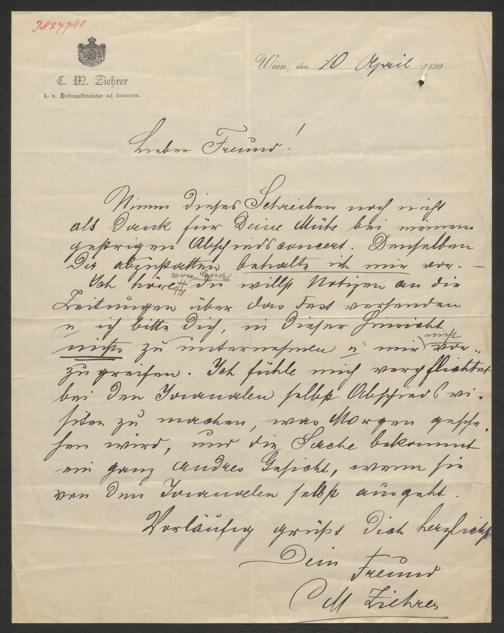 IN 27740
C. M. Ziehrer
k. u. Hofcapellmeister ad honores.
Wien, den 10 April 1899
Lieber Freund!
Nimm dieses Schreiben noch nicht
als Dank für Deine Mühe bei meinem
gestrigen Abschiedsconcert. Denselben
Dir abzustatten behalte ich mir vor. –
Ich höre du willst Notizen an die
Zeitungen über das Fest versenden
u ich bitte Dich, in dieser Hinsicht
nichts zu unternehmen u mir nicht vor-
zugreifen. Ich fühle mich verpflichtet
bei den Journalen selbst Abschiedsvi-
siten zu machen, was Morgen gesche-
hen wird, und die Sache bekommt
ein ganz andres Gesicht, wenn sie
von den Journalen selbst ausgeht.
Vorläufig grüßt Dich herzlichst
Dein Freund
CM Ziehrer